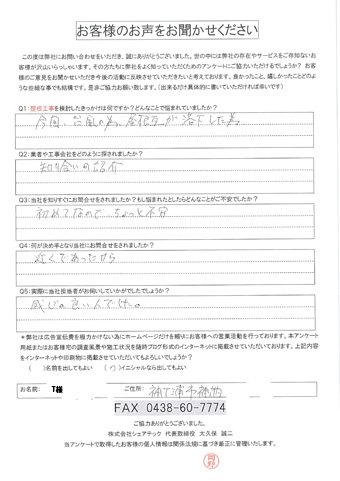 お客様のお声をお聞かせください
この度は弊社にお問い合わせをいただき、誠にありがとうございました。世の中には弊社の存在やサービスをご存知ないお
客様が沢山いらっしゃいます。その方たちに弊社をよく知っていただくためのアンケートにご協力いただけるでしょうか？ お客
様のご意見をお聞かせいただき今後の活動に反映させていただきたいと考えております。良かったこと、嬉しかったことどのよ
うな些細な事でも結構です。是非ご協力お願い致します。（出来るだけ具体的に書いていただければ幸いです）
Q1：屋根工事を検討したきっかけは何ですか？どんなことで悩まれていましたか？
今回、台風の為、屋根瓦が落下した為
Q2：業者や工事会社をどのように探されましたか？
知り合いの紹介
Q3：当社を知りすぐにお問合せをされましたか？もし悩まれたとしたらどんなことがご不安でしたか？
初めてなので、ちょっと不安
Q4：何が決め手となり当社にお問合せをされましたか？
近くであったから
Q5：実際に当社担当者がお伺いしていかがでしたでしょうか？
感じの良い人でした。
＊弊社は広告宣伝費を極力かけない為にホームページだけを頼りにお客様への営業活動を行っております。本アンケート
用紙またはお客様宅の調査風景や施工状況を随時ブログ形式のインターネットに掲載させていただいております。上記内容
をインターネットや印刷物に掲載させていただいてもよろしいでしょうか？
（ ）名前を出してもよい （○）イニシャルなら出してもよい
お名前： T様 ご住所：
FAX 0438-60-7774
ご協力ありがとうございました。
株式会社シェアテック 代表取締役 大久保 誠二
当アンケートで取得したお客様の個人情報は関係法規に基づき厳正に管理いたします。